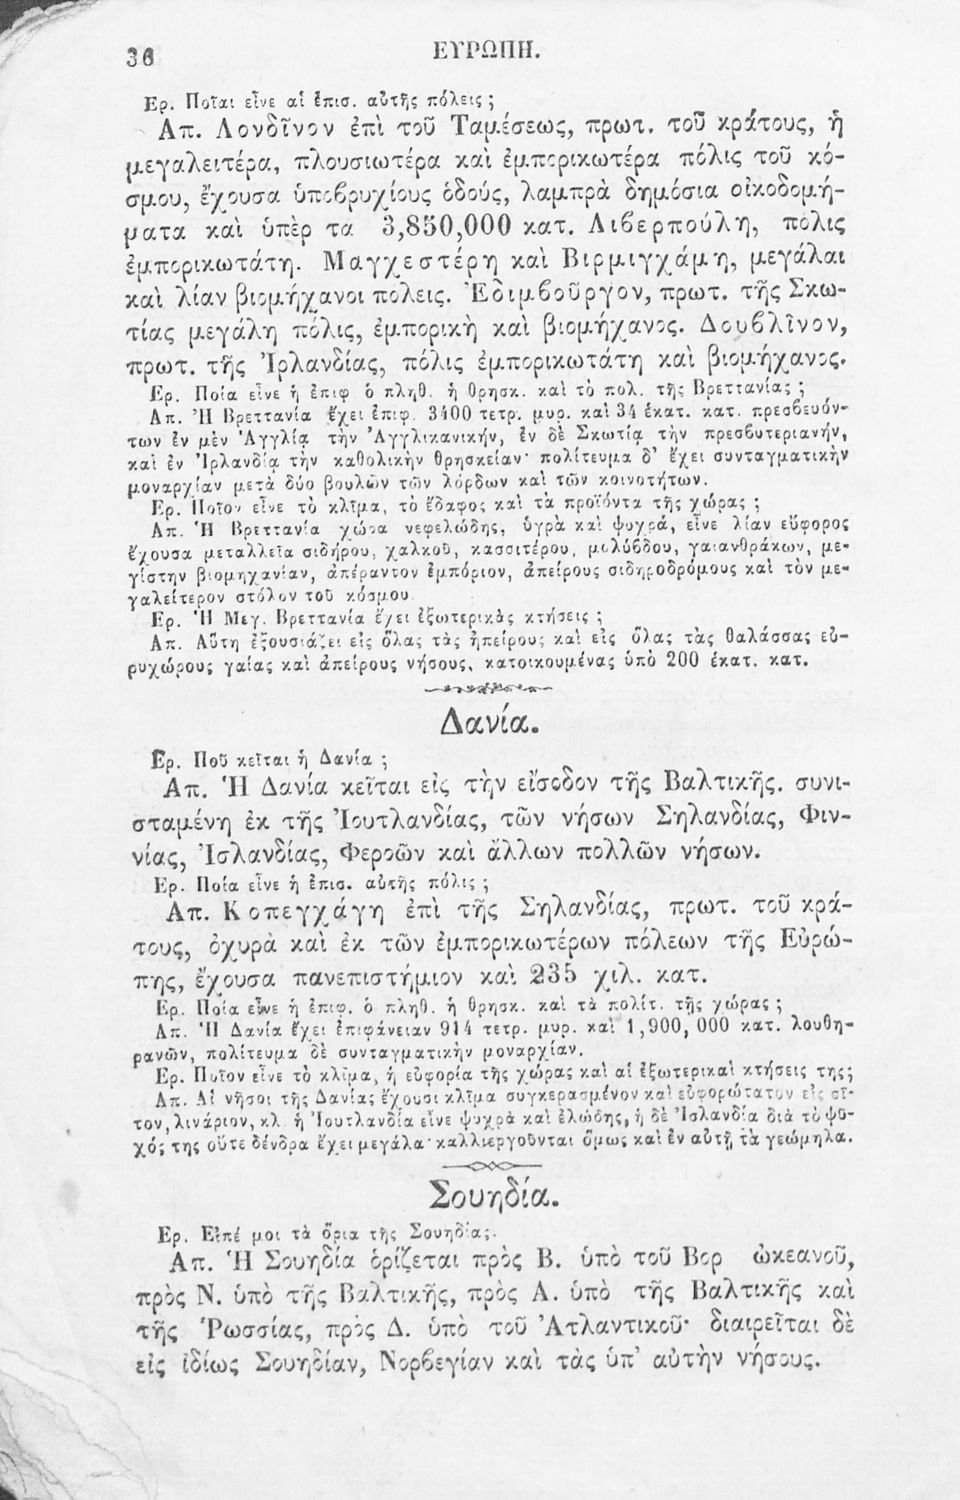 36
ΕΥΡΩΠΗ.
Ερ. Ποῖαι εἶνε αἱ ἐπισ. αὐτῆς πόλεις ;
Απ. Λονδῖνον ἐπὶ τοῦ Ταμέσεως, πρωτ. τοῦ κράτους, ἡ
μεγαλειτέρα, πλουσιωτέρα καὶ ἐμπορικωτέρα πόλις τοῦ κό-
σμου, ἔχουσα ὑποβρυχίους ὁδούς, λαμπρὰ δημόσια οἰκοδομή-
ματα καὶ ὑπὲρ τὰ 3,850,000 κατ. Λιβερπούλη, πόλις
ἐμπορικωτάτη. Μαγχεστέρη καὶ Βιρμιγχάμη, μεγάλαι
καὶ λίαν βιομήχανοι πόλεις. Ἐδιμβοῦργον, πρωτ. τῆς Σκω-
τίας μεγάλη πόλις, ἐμπορικὴ καὶ βιομήχανος. Δουβλῖνον,
πρωτ. τῆς Ἰρλανδίας, πόλις ἐμπορικωτάτη καὶ βιομήχανος.
Ερ. Ποία εἶνε ἡ ἐπιφ ὁ πληθ. ἡ θρησκ. καὶ τὸ πολ. τῆς Βρεττανίας ;
Απ. Ἡ Βρεττανία ἔχει ἐπιφ. 3400 τετρ. μυρ. καὶ 34 ἑκατ. κατ. πρεσβευόν-
των ἐν μὲν Ἀγγλίᾳ τὴν Ἀγγλικανικήν, ἐν δὲ Σκωτίᾳ τὴν πρεσβυτεριανήν,
καὶ ἐν Ἰρλανδίᾳ τὴν καθολικὴν θρησκείαν· πολίτευμα δ' ἔχει συνταγματικὴν
μοναρχίαν μετὰ δύο βουλῶν τῶν λόρδων καὶ τῶν κοινοτήτων.
Ερ. Ποῖον εἶνε τὸ κλῖμα, τὸ ἔδαφος καὶ τὰ προϊόντα τῆς χώρας ;
Απ. Ἡ Βρεττανία χώρα νεφελώδης, ὑγρὰ καὶ ψυχρά, εἶνε λίαν εὔφορος
ἔχουσα μεταλλεῖα σιδήρου, χαλκοῦ, κασσιτέρου, μολύβδου, γαιανθράκων, με-
γίστην βιομηχανίαν, ἀπέραντον ἐμπόριον, ἀπείρους σιδηροδρόμους καὶ τὸν με-
γαλείτερον στόλον τοῦ κόσμου
Ερ. Ἡ Μεγ. Βρεττανία ἔχει ἐξωτερικὰς κτήσεις ;
Απ. Αὕτη ἐξουσιάζει εἰς ὅλας τὰς ἠπείρους καὶ εἰς ὅλας τὰς θαλάσσας εὐ-
ρυχώρους γαίας καὶ ἀπείρους νήσους, κατοικουμένας ὑπὸ 200 ἑκατ. κατ.
Δανία.
Ερ. Ποῦ κεῖται ἡ Δανία ;
Απ. Ἡ Δανία κεῖται εἰς τὴν εἴσοδον τῆς Βαλτικῆς. συνι-
σταμένη ἐκ τῆς Ἰουτλανδίας, τῶν νήσων Σηλανδίας, Φιν-
νίας, Ἰσλανδίας, Φεροῶν καὶ ἄλλων πολλῶν νήσων.
Ερ. Ποία εἶνε ἡ ἐπισ. αὐτῆς πόλις ;
Απ. Κοπεγχάγη ἐπὶ τῆς Σηλανδίας, πρωτ. τοῦ κρά-
τους, ὀχυρὰ καὶ ἐκ τῶν ἐμπορικωτέρων πόλεων τῆς Εὐρώ-
πης, ἔχουσα πανεπιστήμιον καὶ 235 χιλ. κατ.
Ερ. Ποία εἶνε ἡ ἐπιφ. ὁ πληθ. ἡ θρησκ. καὶ τὰ πολίτ. τῆς χώρας ;
Απ. Ἡ Δανία ἔχει ἐπιφάνειαν 914 τετρ. μυρ. καὶ 1,900,000 κατ. λουθη-
ρανῶν, πολίτευμα δὲ συνταγματικὴν μοναρχίαν.
Ερ. Ποῖον εἶνε τὸ κλῖμα, ἡ εὐφορία τῆς χώρας καὶ αἱ ἐξωτερικαὶ κτήσεις της;
Απ. Αἱ νῆσοι τῆς Δανίας ἔχουσι κλῖμα συγκερασμένον καὶ εὐφορώτατον εἰς σῖ-
τον, λινάριον, κλ. ἡ Ἰουτλανδία εἶνε ψυχρὰ καὶ ἑλώδης, ἡ δὲ Ἰσλανδία διὰ τὸ ψῦ-
χός της οὔτε δένδρα ἔχει μεγάλα· καλλιεργοῦνται ὅμως καὶ ἐν αὐτῇ τὰ γεώμηλα.
Σουηδία.
Ερ. Εἰπέ μοι τὰ ὅρια τῆς Σουηδίας.
Απ. Ἡ Σουηδία ὁρίζεται πρὸς Β. ὑπὸ τοῦ Βορ ὠκεανοῦ,
πρὸς Ν. ὑπὸ τῆς Βαλτικῆς, πρὸς Α. ὑπὸ τῆς Βαλτικῆς καὶ
τῆς Ῥωσσίας, πρὸς Δ. ὑπὸ τοῦ Ἀτλαντικοῦ· διαιρεῖται δὲ
εἰς ἰδίως Σουηδίαν, Νορβεγίαν καὶ τὰς ὑπ' αὐτὴν νήσους.